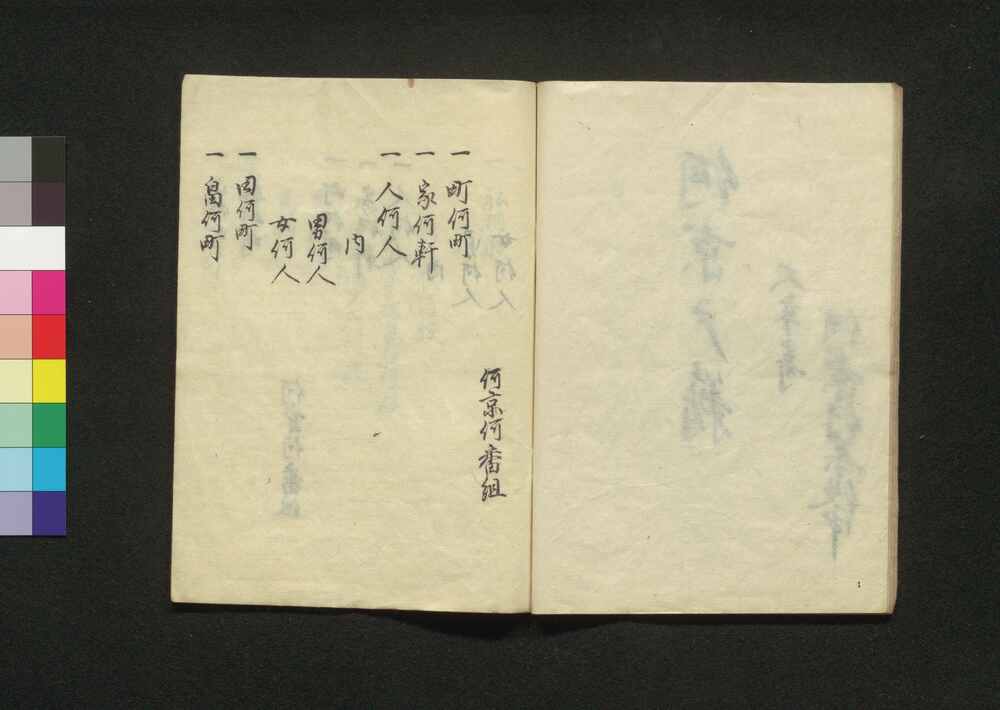 何京何番組
一町何町
一家何軒
一人何人
内
男何人
女何人
一田何町
一畠何町